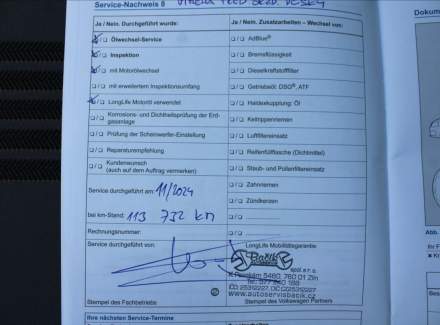 Service-Nachweis 8
Ja / Nein. Durchgeführt wurde:
Ölwechsel-Service
Inspektion
mit Motorölwechsel
mit erweitertem Inspektionsumfang
LongLife Motoröl verwendet
Korrosions- und Dichtheitsprüfung der Erdgasanlage
Prüfung der Scheinwerfer-Einstellung
Reparaturempfehlung
Kundenwunsch
(auch auf dem Auftrag vermerken)
Service durchgeführt am: 11/2024
bei km-Stand: 113 732 km
Rechnungsnummer:
Service durchgeführt von:
Stempel des Fachbetriebs
Ja / Nein. Zusatzarbeiten – Wechsel von:
AdBlue®
Bremsflüssigkeit
Dieselkraftstofffilter
Getriebeöl: DSG®, ATF
Haldexkupplung: Öl
Keilrippenriemen
Luftfiltereinsatz
Reifenfüllflasche (Dichtmittel)
Staub- und Pollenfiltereinsatz
Zahnriemen
Zündkerzen
LongLife Mobilitätsgarantie
Bačík
spol. s r.o.
760 01 Zlín
www.autoservisbacik.cz
Stempel des Volkswagen Partners
Ihre nächsten Service-Termine
Dokum
Abb.
Ihr F